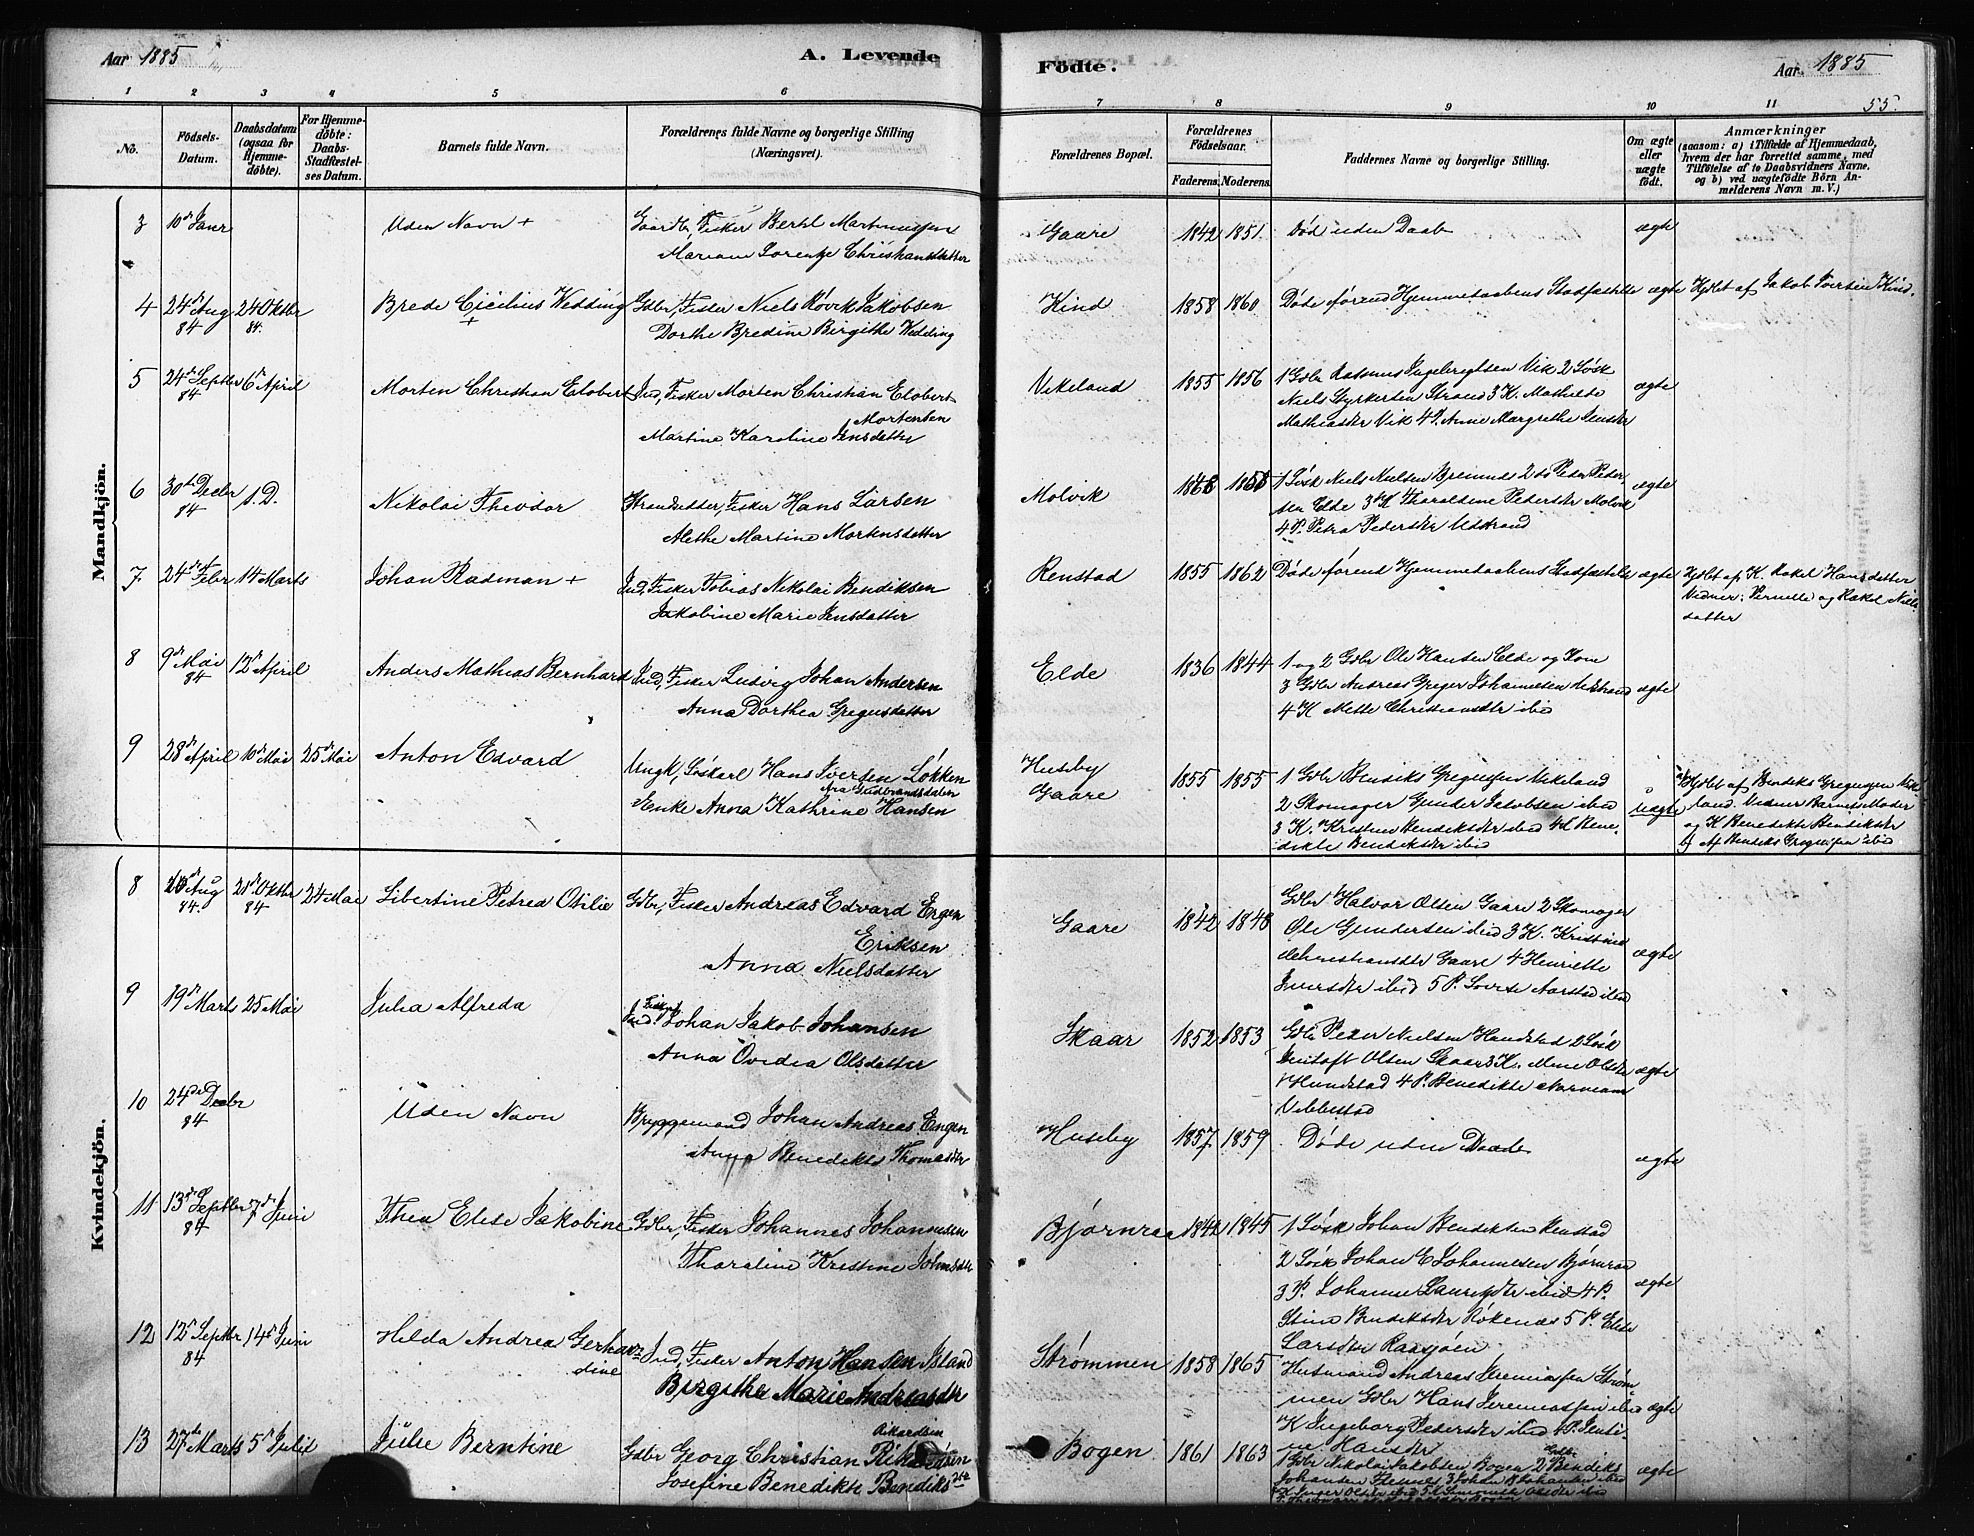 Aar 1885
A. Levende
Födte.
Aar. 1885
55.
1 2 3 4 5 6 7 8 9 10 11
No.
Födsels-Datum.
Daabsdatum (ogsaa for Hjemme-döbte).
For Hjemme-döbte: Daabs-Stadfæstel-ses Datum.
Barnets fulde Navn.
Forældrenes fulde Navne og borgerlige Stilling (Næringsvei).
Forældrenes Bopæl.
Forældrenes Födselsaar.
Faderens. Moderens.
Faddernes Navne og borgerlige Stilling.
Om ægte eller uægte födt.
Anmærkninger
(saasom: a) i Tilfælde af Hjemmedaab,
hvem der har forrettet samme, med
Tilföielse af to Daabsvidners Navne.
og b) ved uægtefödte Börn An-
melderens Navn m. V.)
Mandkjön.
3 10de Janr Uden Navn + Gaardbr, Fisker Bertel Martinussen Gaare 1842 1851 Død uden Daab ægte
Christiansdatter
4 24de Aug 84 24 Oktbr 84. Brede Cicilius Wedding + Gdbr, Fisker Niels Røvik Jakobsen Kind 1858 1860 Døde førend Hjemmedaabens Stadfæstelse ægte Hjdbt af Jakob Iversen Kind.
Dorthe Bredine Birgithe Wedding
5 24de Septbr 84 6te April Morten Christian Elobert Ind, Fisker Morten Christian Elobert Mortensen Vikeland 1855 1856 1 Gdbr Rasmus Ingebregtsen Vik 2 Løsk ægte
Martine Karoline Jensdatter
Niels Styrkersen Strand 3 K. Mathilde
Mathiasdtr Vik 4 P. Anne Margrethe Jensdtr
6 30te Decbr 84 s. D. Nikolai Theodor Strandsidder, Fisker Hans Larsen Molvik 1 Løsk Niels Nielsen Bremnes 2 do Peder Peder ægte
Methe Martine Mortensdatter
sen Elde 3 K Tharaldine Pedersdtr Molvik
4 P. Petra Pedersdtr Utstrand
7 24de Febr 14 Marts Johan Radman + Ind, Fisker Tobias Nikolai Bendiksen Renstad 1855 1862 Døde førend Hjemmedaabens Stadfæstelse ægte Hjdbt af K. Rakel Hansdatter
Jakobine Marie Jensdatter
Vidner: Pernelle og Rakel Niels
datter
8 9de Mai 84 12te April Anders Mathias Bernhard Ind, Fisker Ludvig Johan Andersen Elde 1836 1844 1 og 2 Gdbr Ole Hansen Elde og Kone ægte
Anna Dorthea Gregusdatter
3 Gdbr Andreas Greger Johannesen Utstrand
4 K Mette Christiansdtr ibid
9 28de April 10de Mai 25de Mai Anton Edvard Ungk, Løskarl Hans Iversen Løkken Husby 1855 1855 1 Gdbr Bendiks Gregussen Vikeland uægte a) Hjdbt af Bendiks Gregussen Vike
fra Gudbrandsdalen
Enke Anna Kathrine Hansen Gaare
2 Skomager Gunder Jakobsen ibid
land. Vidner Barnets Moder
3 K. Kristine Bendiksdtr ibid 4 K Bene
og K Benedikte Bendiksdtr
dikte Bendiksdtr ibid
b) Af Bendiks Gregussen ibid
Kvindekjön.
8 Aug 84. 21de Oktbr 84 24 Mai Libertine Petrea Otilie Gdbr, Fisker Andreas Edvard Engen Eriksen Gaare 1842 1848 Gdbr Halvor Olsen Gaare 2 Skomager ægte
Anna Nielsdatter
Ole Gundersen ibid 3 K. Kristine
Christiansdtr Gaare 4 Henriette
Iversdtr ibid 5 P. Lovise Aarstad ibid
9 19de Marts 25 Mai Julia Alfreda Ind. Fisker Johan Jakob Johansen Skaar 1852 1853 Gdbr Peder Nielsen Hundstad 2 Løsk ægte
Anna Ovedia Olsdatter
Olsen Skaar 3 K. Mene Olsdtr
Hundstad 4 P. Benedikte Normann
Vibbestad
10 24de Decbr 84 Uden Navn Bryggemand Johan Andreas Engen Husby 1857 1859 Døde uden Daab ægte
Anna Benedikte Thomasdtr
11 13de Septbr 84 7de Juni Thea Elise Jakobine Gdbr, Fisker Johannes Johannesen Bjørnraa 1842 1845 1 Løsk Johan Bendiksen Renstad ægte
Tharaline Kristine Johnsdtr
2 Løsk Johan E Johannesen Bjørnraa
3 P. Johanne Lauritsdtr ibid 4 P.
Stine Bendiksdtr Røkenes 5 P. Elise
Larsdtr Raasjøen
12 12te Septbr 84 14de Juni Hilda Andrea Gerhar dine Ind, Fisker Anton Hansen Island Strømmen 1858 1865 Husmand Andreas Jeremiassen Strøm ægte
Birgithe Marie Andreasdtr
men Gdbr Hans Jeremiassen ibid
K Ingeborg Pedersdtr ibid 4 P. Jenti
ne Hansdtr
13 27de Marts 5te Juli Julie Berntine Gdbr Georg Christian Rikardsen Bogen 1861 1863 1 Gdbr Nikolai Jakobsen Bogen 2 Gdbr Bendiks ægte
Josefine Benedikte Bendiksdtr
Johansen Flesnes 3 Johan R Johansen ibid